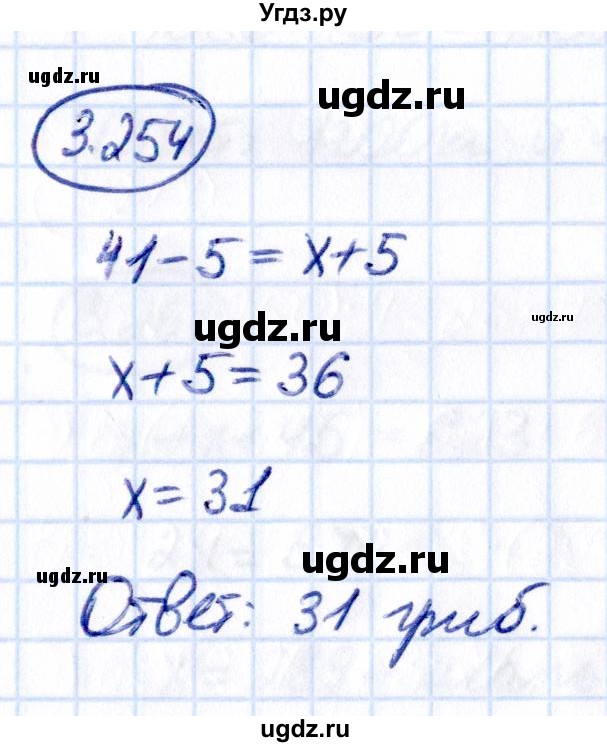 Угдз.ру
ugdz.ru
ugdz.ru
3.254
41-5 = x+5
ugdz.ru
ugdz.ru
x+5=36
x=31
ugdz.ru
ugdz.ru
Ответ: 31 гриб.
ugdz.ru